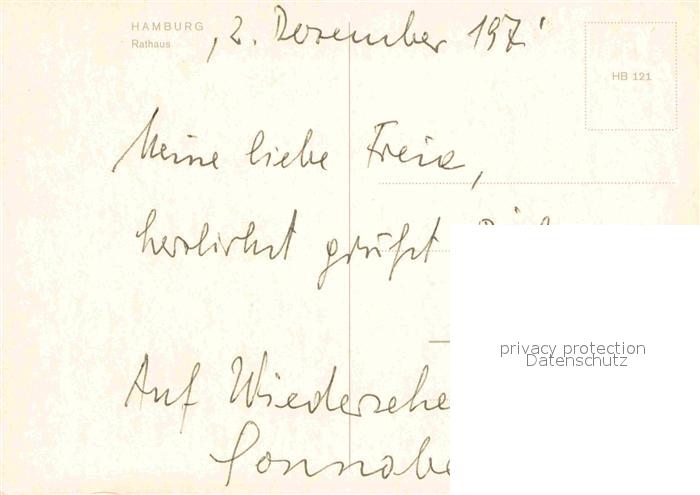 HAMBURG
Rathaus
, 2. Dezember 197
HB 121
Meine liebe Freia,
herzlichst grüßt
Auf Wiedersehe
Sonnabe
privacy protection
Datenschutz